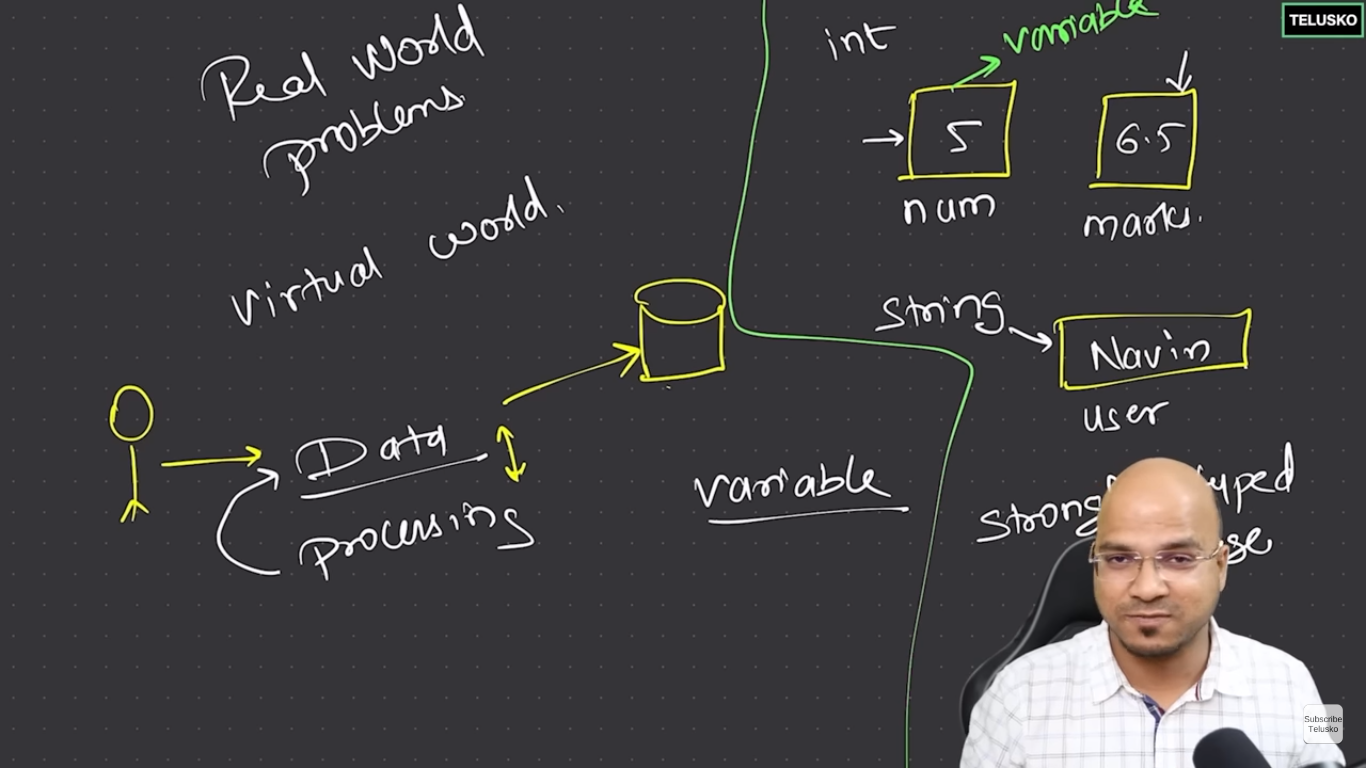 Real World
problems.
virtual world.
Data
processing
variable
int
variable
5
6.5
num
marks.
String
Navin
user
TELUSKO
Subscribe
Telusko